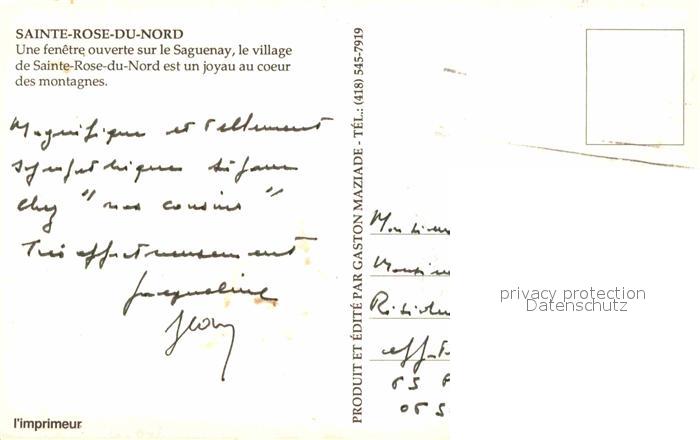 SAINTE-ROSE-DU-NORD
Une fenêtre ouverte sur le Saguenay, le village
de Sainte-Rose-du-Nord est un joyau au coeur
des montagnes.
Magnifique et tellement
sympathique séjour
chez "nos cousins"
Très affectueusement
Jacqueline
Jean
l'imprimeur
PRODUIT ET ÉDITÉ PAR GASTON MAZIADE - TÉL.: (418) 545-7919
privacy protection
Datenschutz